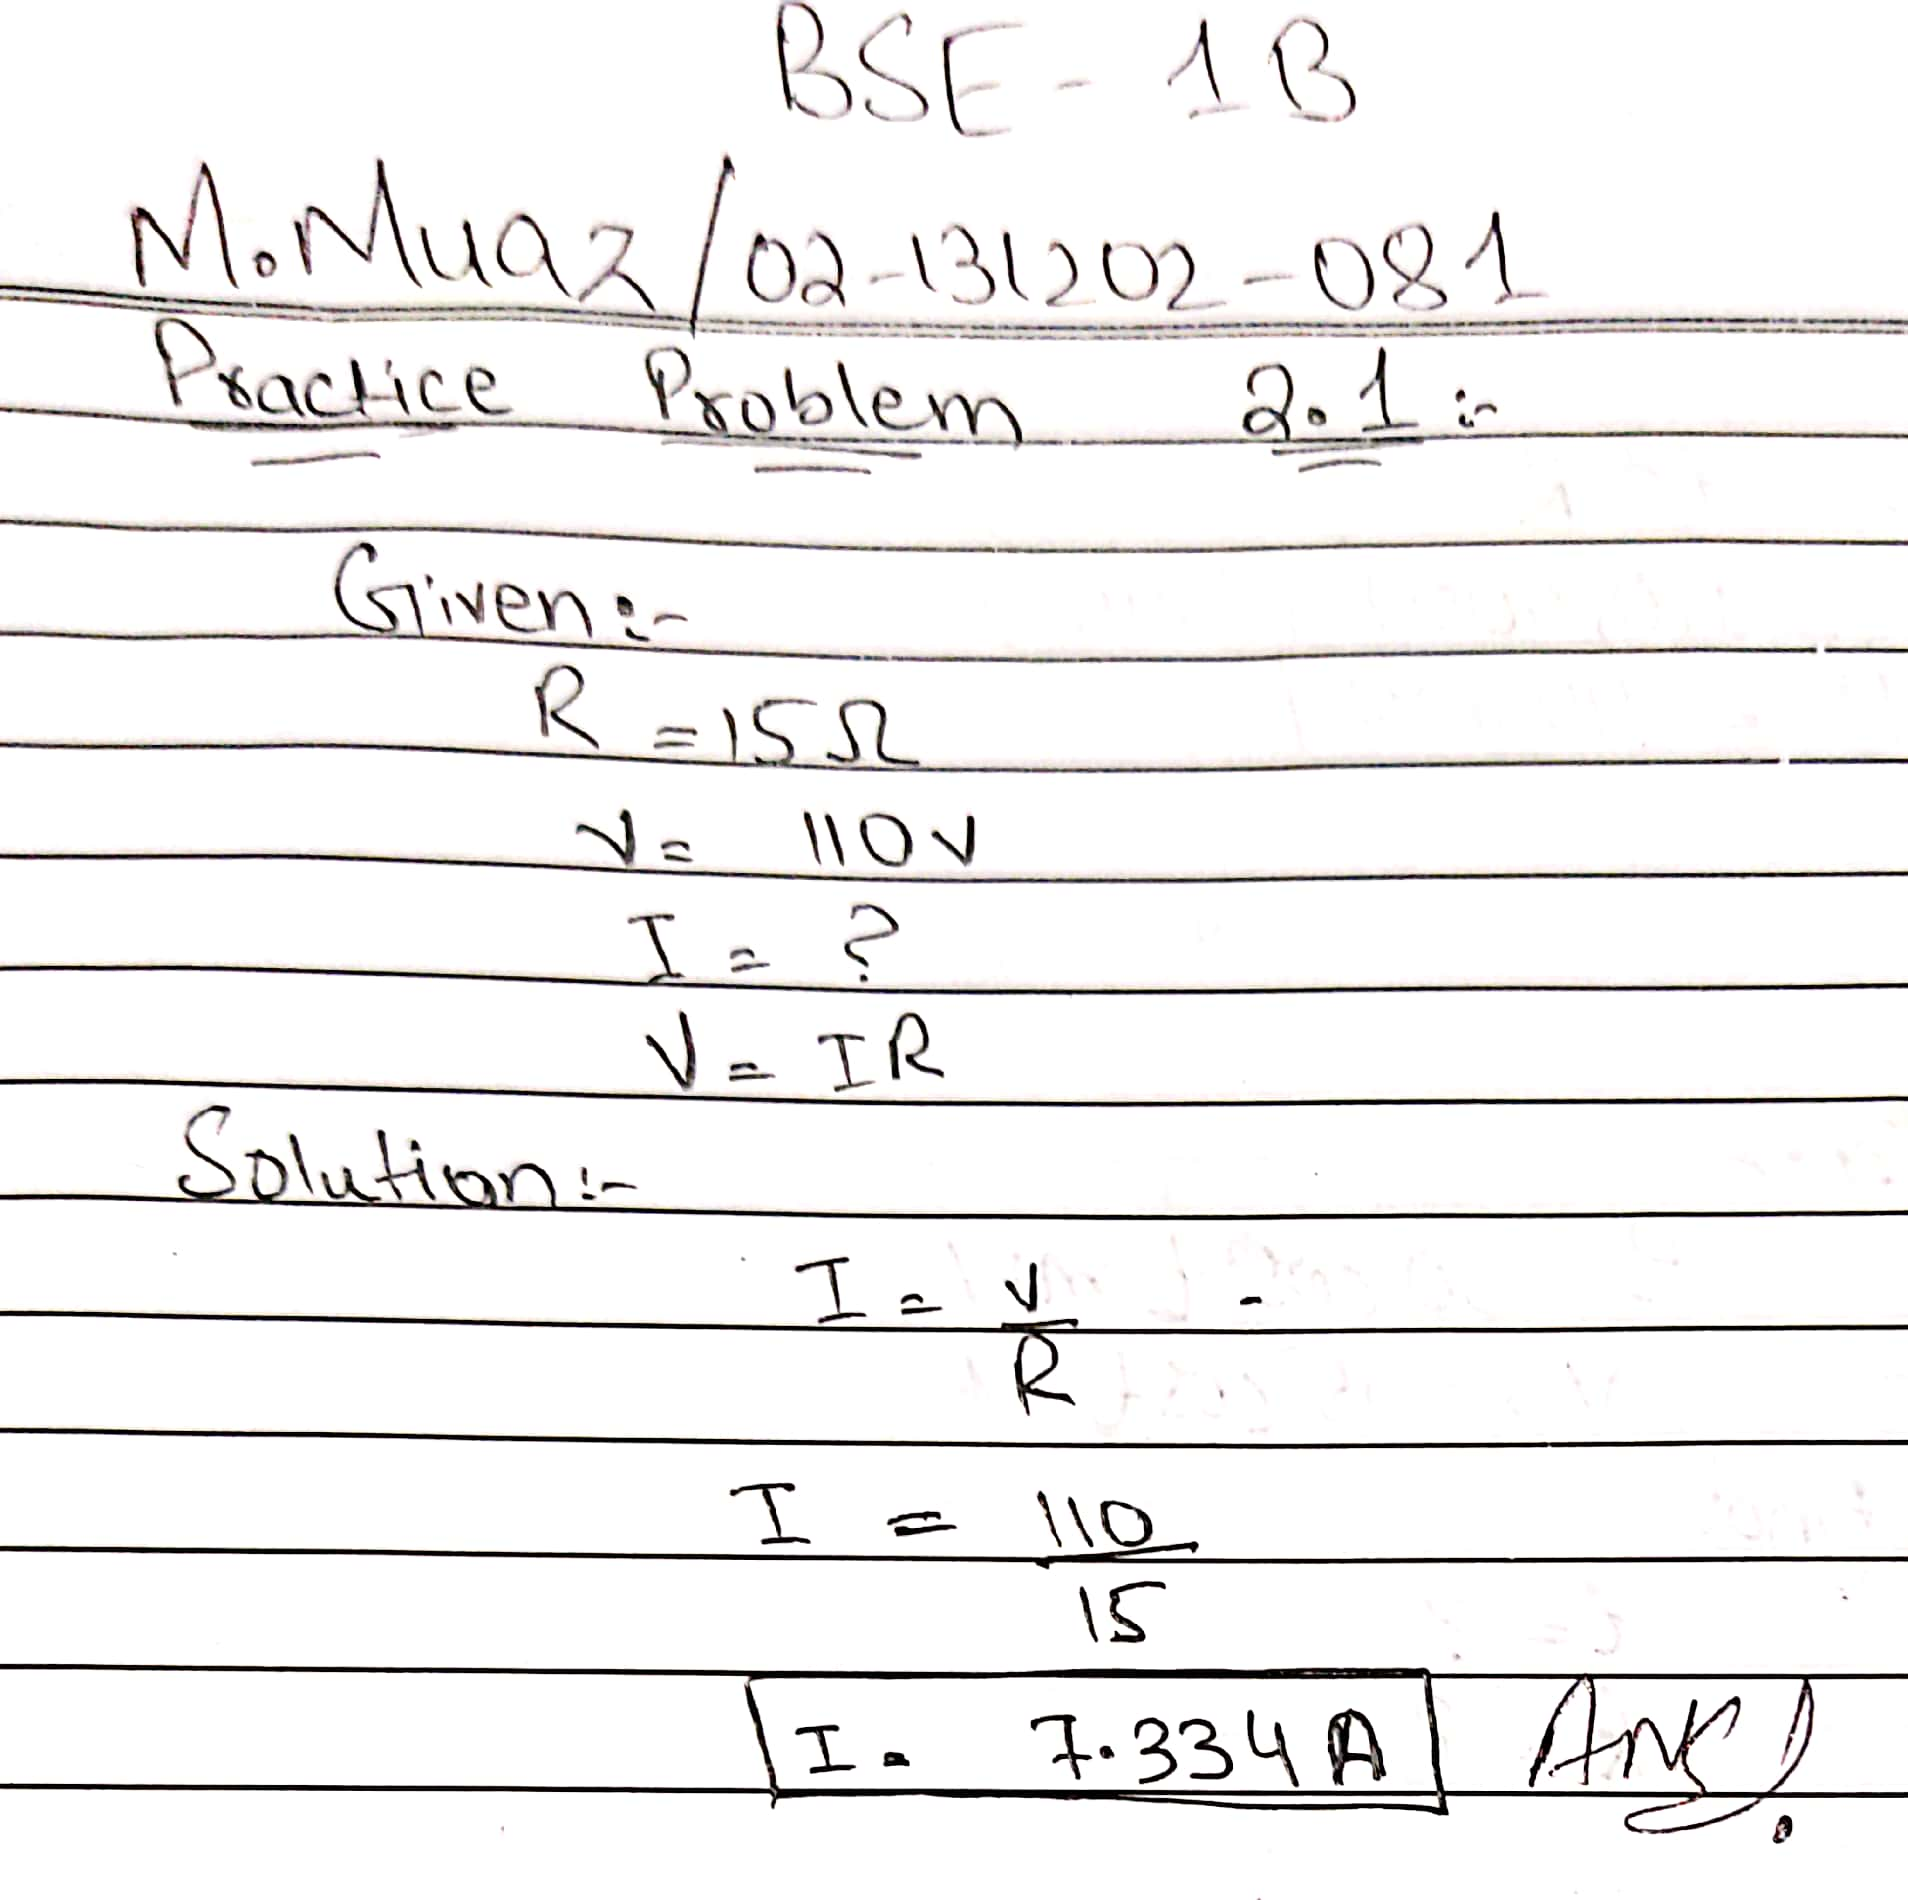 BSE - 1B
M.Muaz/02-131202-081
Practice Problem 2.1 :-
Given :-
R = 15Ω
V = 110V
I = ?
V = IR
Solution :-
I = V/R -
I = 110/15
I = 7.334 A Ans).